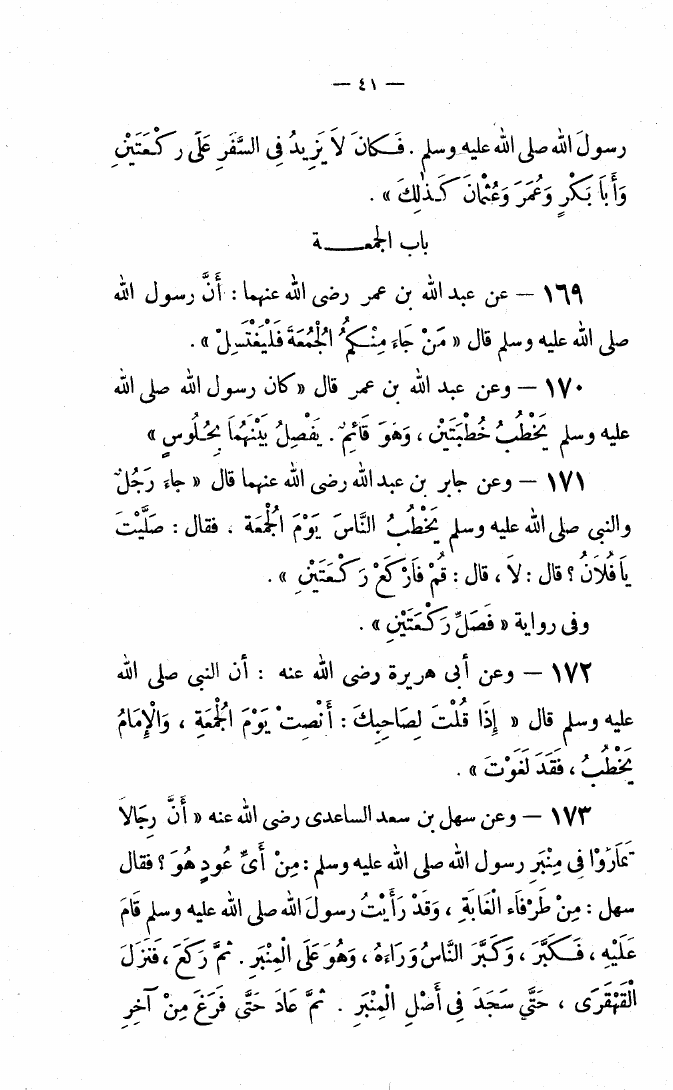 — ٤١ —
رسولَ الله صلى الله عليه وسلم . فَكَانَ لاَ يَزِيدُ فِى السَّفَرِ عَلَى رَكْعَتَيْنِ
وَأَبَا بَكْرٍ وَعُمَرَ وَعُثْمَانَ كَذٰلِكَ » .
باب الجمعــة
١٦٩ — عن عبد الله بن عمر رضى الله عنهما : أَنَّ رسول الله
صلى الله عليه وسلم قال « مَنْ جَاءَ مِنْكُمُ الْجُمُعَةَ فَلْيَغْتَسِلْ » .
١٧٠ — وعن عبد الله بن عمر قال « كان رسول الله صلى الله
عليه وسلم يَخْطُبُ خُطْبَتَيْنِ ، وَهُوَ قَائِمٌ . يَفْصِلُ بَيْنَهُمَا بِجُلُوسٍ »
١٧١ — وعن جابر بن عبد الله رضى الله عنهما قال « جاءَ رَجُلٌ
والنبى صلى الله عليه وسلم يَخْطُبُ النَّاسَ يَوْمَ الْجُمُعَةِ . فقال : صَلَّيْتَ
يَا فُلاَنُ ؟ قال : لاَ ، قال : قُمْ فَارْكَعْ رَكْعَتَيْنِ » .
وفى رواية « فَصَلِّ رَكْعَتَيْنِ » .
١٧٢ — وعن أبى هريرة رضى الله عنه : أن النبى صلى الله
عليه وسلم قال « إِذَا قُلْتَ لِصَاحِبِكَ : أَنْصِتْ يَوْمَ الْجُمُعَةِ ، وَالْإِمَامُ
يَخْطُبُ ، فَقَدَ لَغَوْتَ » .
١٧٣ — وعن سهل بن سعد الساعدى رضى الله عنه « أَنَّ رِجَالاً
تَمَارَوْا فِى مِنْبَرِ رسول الله صلى الله عليه وسلم : مِنْ أَىِّ عُودٍ هُوَ ؟ فقال
سهل : مِنْ طَرْفَاءِ الْغَابَةِ ، وَقَدْ رَأَيْتُ رسولَ الله صلى الله عليه وسلم قَامَ
عَلَيْهِ ، فَكَبَّرَ ، وَكَبَّرَ النَّاسُ وَرَاءَهُ ، وَهُوَ عَلَى الْمِنْبَرِ . ثُمَّ رَكَعَ ، فَنَزَلَ
الْقَهْقَرَى ، حَتَّى سَجَدَ فِى أَصْلِ الْمِنْبَرِ . ثُمَّ عَادَ حَتَّى فَرَغَ مِنْ آخِرِ